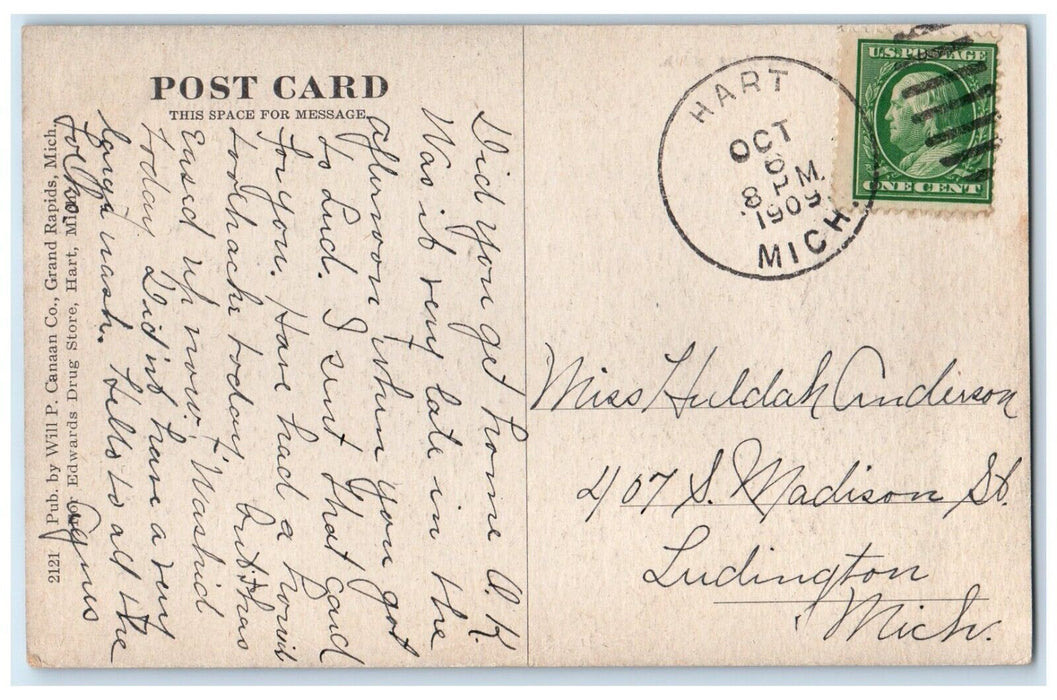 POST CARD
THIS SPACE FOR MESSAGE
Did you get home O.K
Was it very late in the
afternoon when you got
to Lud. I sent that card
for you. Have had a horrid
toothache today but it has
eased up now. Washed
today Did'nt have a very
large wash. Hello to all the
folks
Agnes
2121 Pub. by Will P. Canaan Co., Grand Rapids, Mich.
Edwards Drug Store, Hart, Mich.
HART
OCT
6
8 PM
1909
MICH.
U.S. POSTAGE
ONE CENT
Miss Huldah Anderson
407 S. Madison St.
Ludington
Mich.